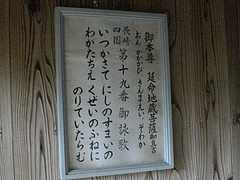 御本尊 延命地蔵菩薩御真言
おん かかかび さんまえい そわか
長崎四国 第十九番 御詠歌
いつかさて にしのすまいの
わがたちえ くぜいのふねに
のりていたらむ